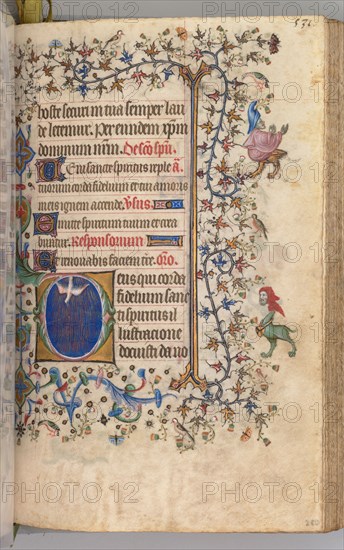 hoste securi in tua semper lau
de letemur. Per eundem xpm
dominum nrm. De sco spu. 
Veni sancte spiritus reple tu
orum corda fidelium et tui amoris
in eis ignem accende. Vsus.
Emitte spiritum tuum et crea
buntur. Responsorium
Et renovabis faciem tre. Oro.
Deus qui corda
fidelium sanc
ti spiritus il
lustracione
docuisti da no